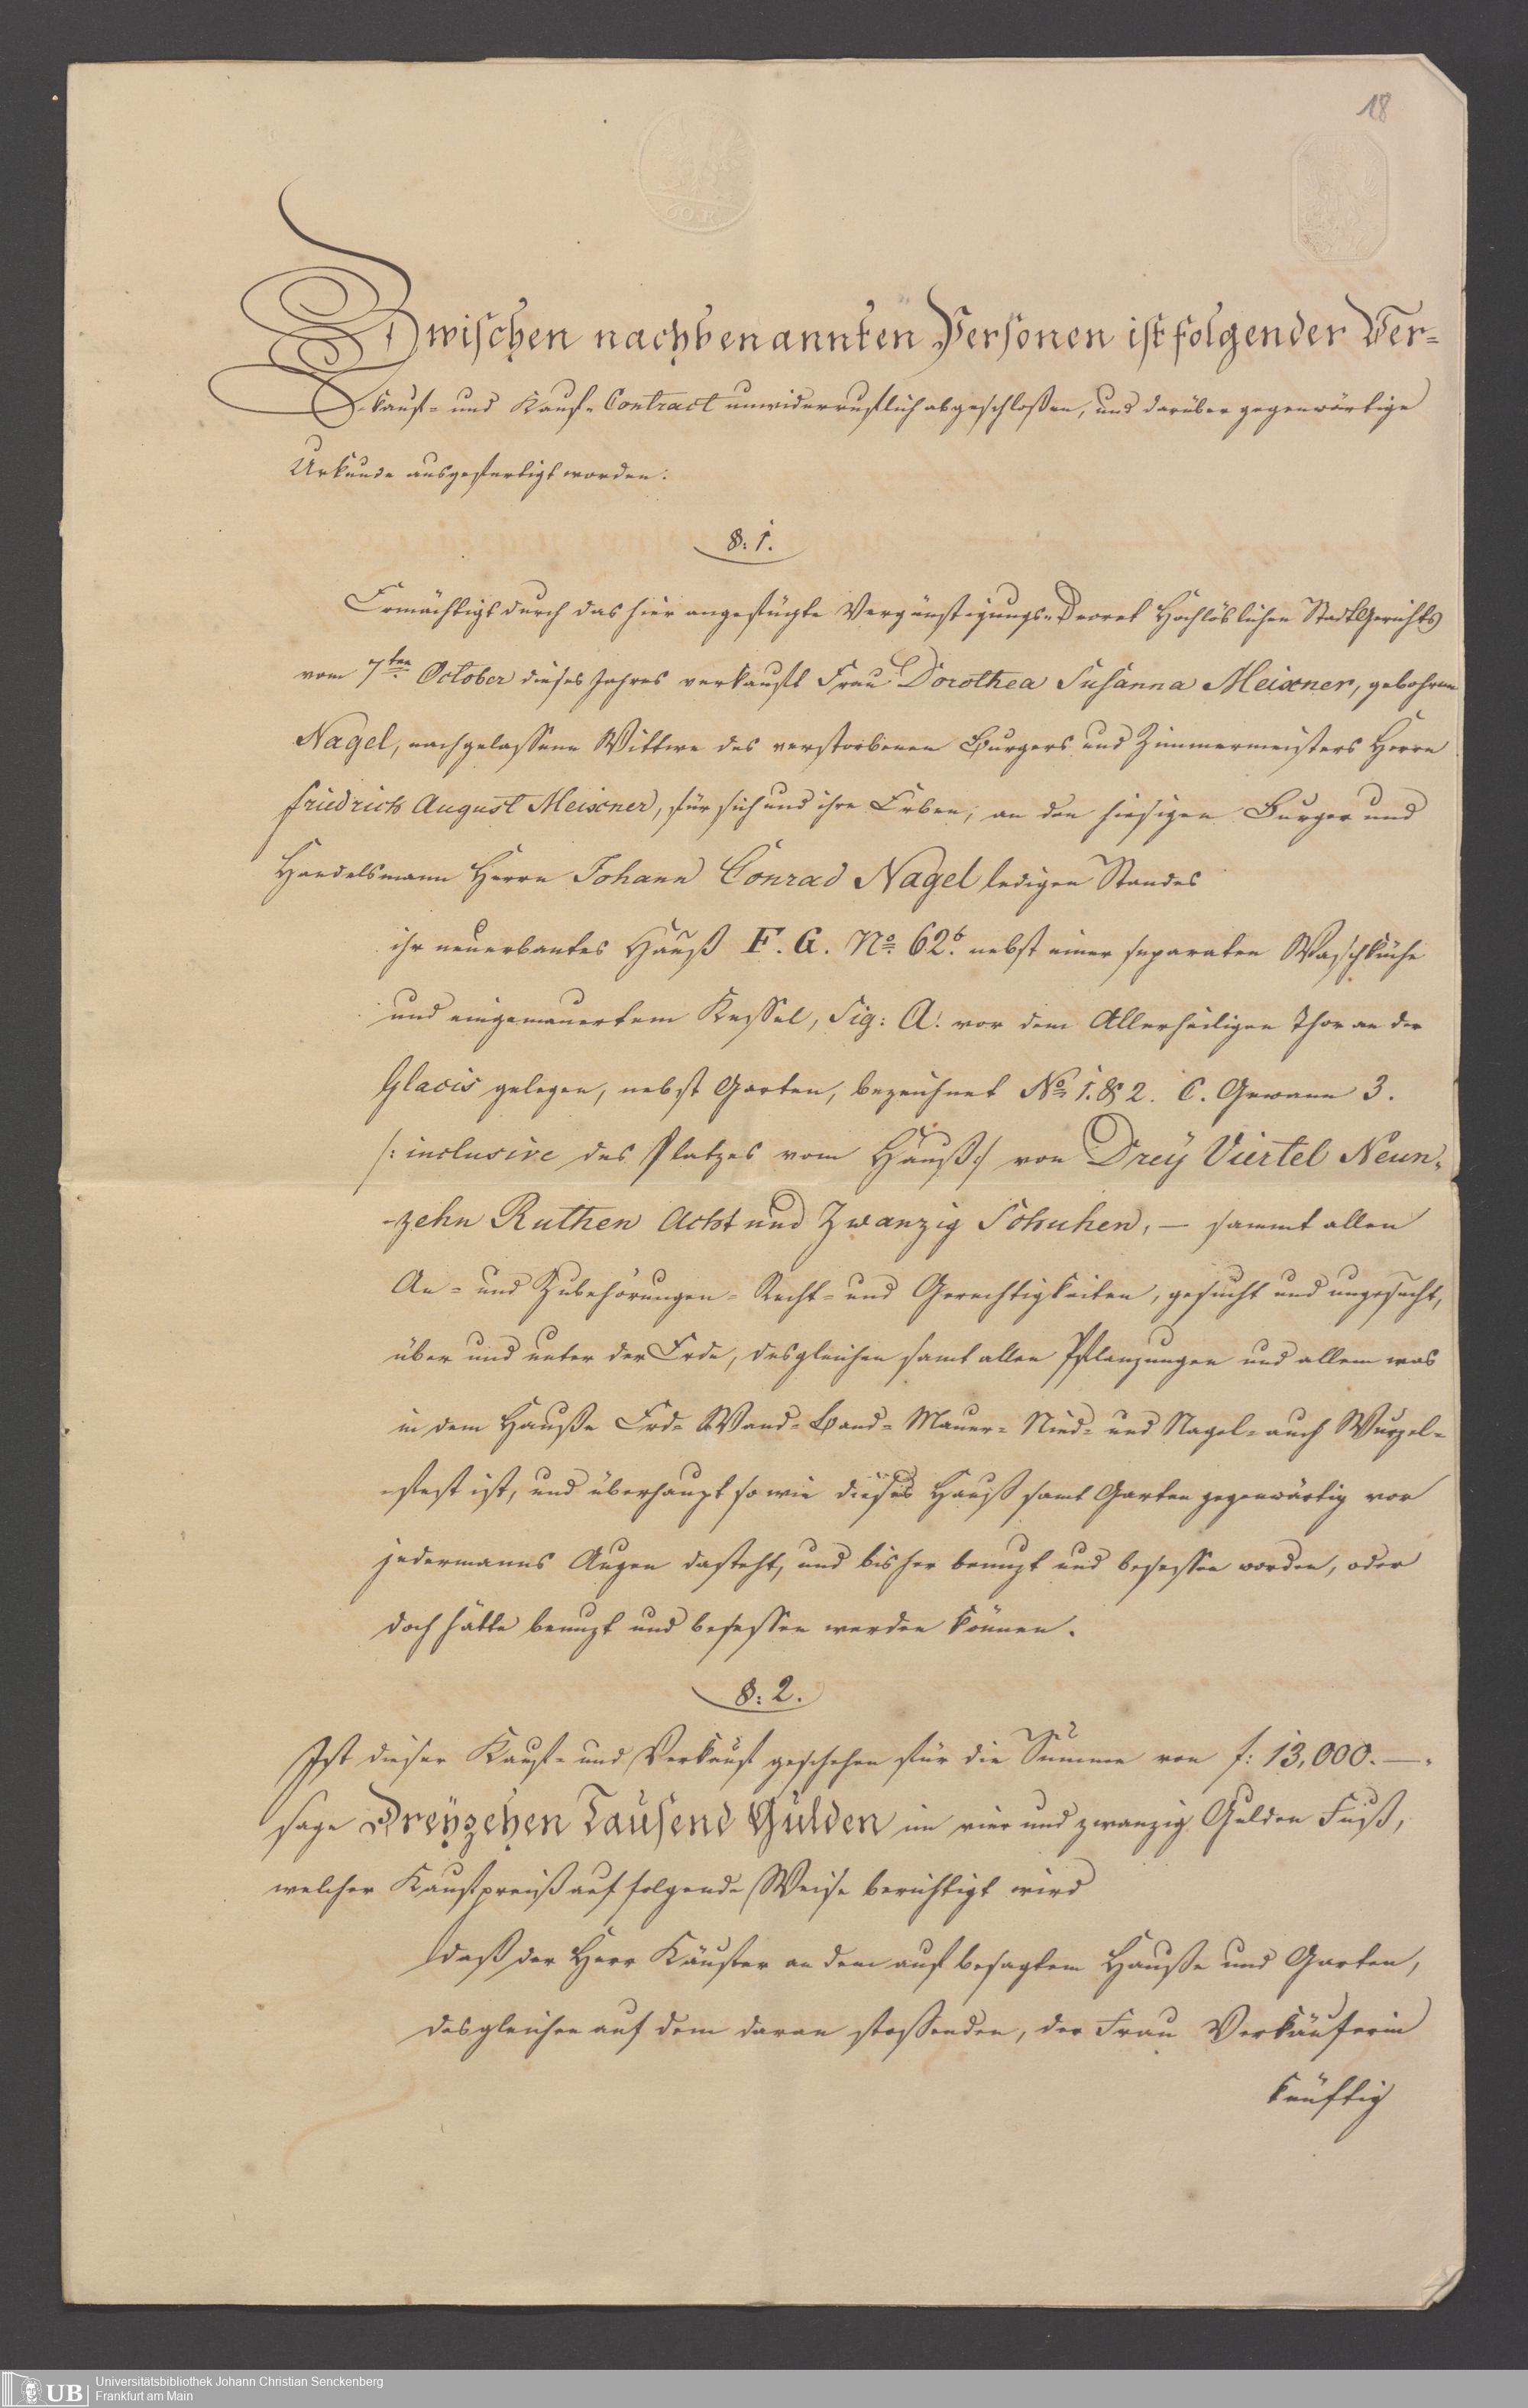 18
60.K
Zwischen nachbenannten Personen ist folgender Ver=
kauf= und Kauf=Contract unwiderruflich abgeschloßen, und darüber gegenwärtige
Urkunde ausgefertigt worden:
§: 1.
Ermächtigt durch das hier angefügte Vergünstigungs=Decret Hochlöblichen Stadt Gerichts
vom 7ten October dieses Jahres verkauft Frau Dorothea Susanna Meixner, gebohrne
Nagel, nachgelaßene Wittwe des verstorbenen Burgers und Zimmermeisters Herrn
Friedrich August Meixner, für sich und ihre Erben, an den hiesigen Burger und
Handelsmann Herrn Johann Conrad Nagel ledigen Standes
ihr neuerbautes Hauß F. G. No. 62b. nebst einer separaten Waschküche
und eingemauertem Keßel, Sig: A. vor dem Allerheiligen Thor an der
Glacis gelegen, nebst Garten, bezeichnet No. 1. & 2. C. Gewann 3.
/: inclusive des Platzes vom Hauß:/ von Drey Viertel Neun=
=zehn Ruthen Acht und Zwanzig Schuhen, — sammt allen
An= und Zubehörungen= Recht= und Gerechtigkeiten, gesucht und ungesucht,
über und unter der Erde, desgleichen samt allen Pflanzungen und allem was
in dem Hauße Erd= Wand= Band= Mauer= Nied= und Nagel= auch Wurzel=
=fest ist, und überhaupt so wie dieses Hauß samt Garten gegenwärtig vor
jedermanns Augen dasteht, und bisher benuzt und besessen worden, oder
doch hätte benuzt und besessen werden können.
§: 2.
Ist dieser Kauf= und Verkauf geschehen für die Summe von f: 13,000. —.
sage Dreyzehen Tausend Gulden im vier und zwanzig Gulden Fuß,
welcher Kaufpreiß auf folgende Weise berichtigt wird
daß der Herr Käufer an dem auf besagtem Hauße und Garten,
desgleichen auf dem daran stoßenden, der Frau Verkäuferin
künftig
UB
Universitätsbibliothek Johann Christian Senckenberg
Frankfurt am Main